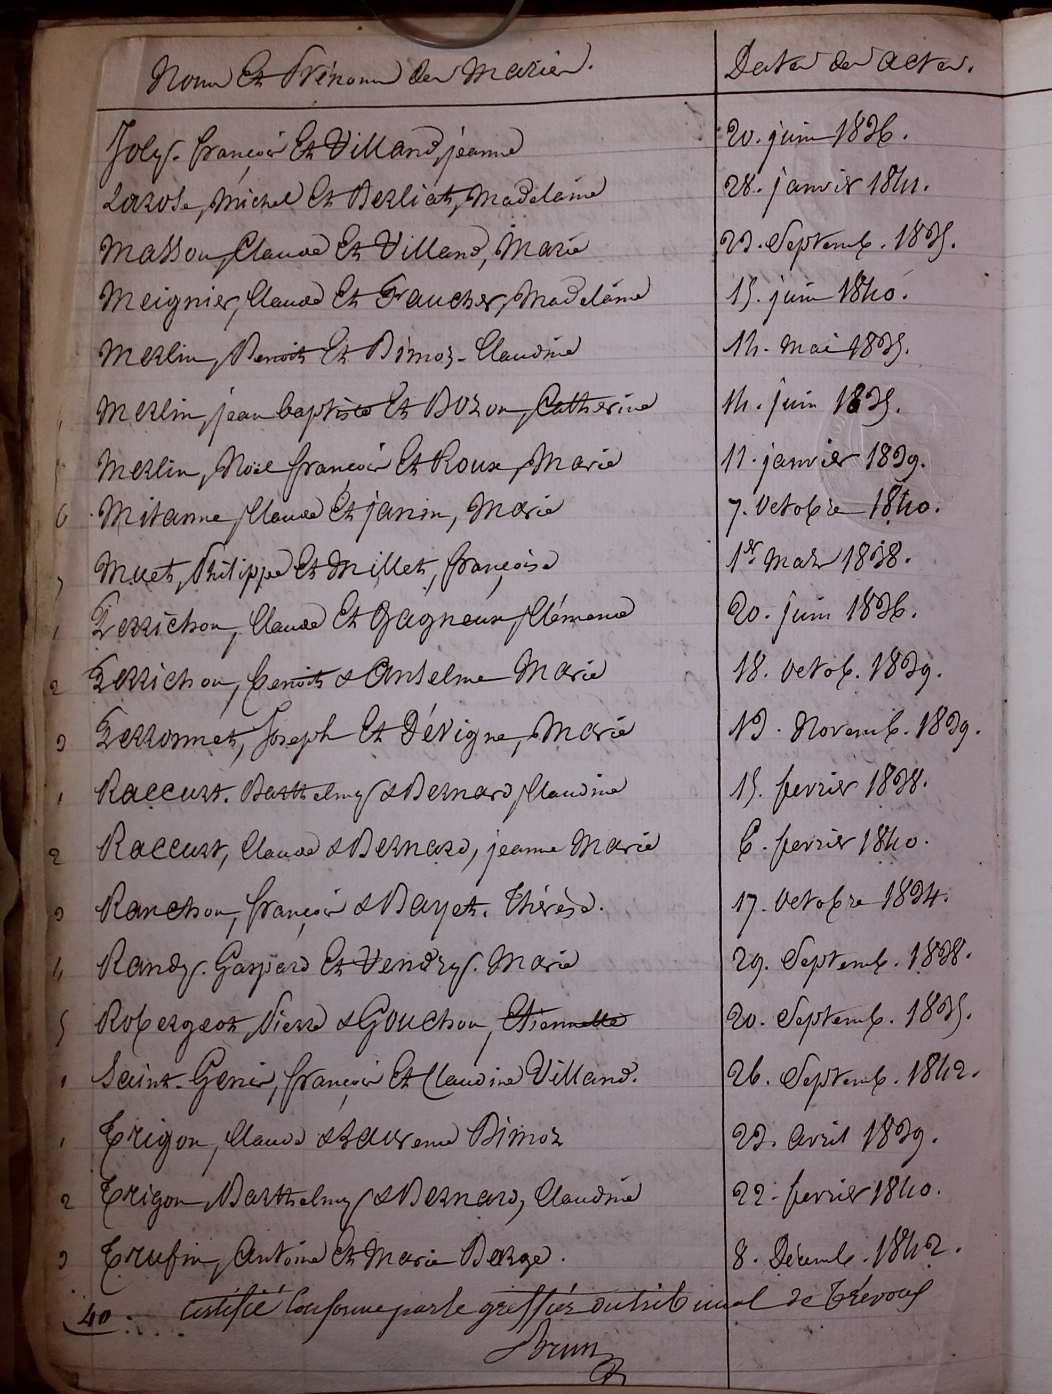 Noms Et Prénoms des Mariés. Dates des actes.
Joly. françois Et Villand, jeanne 20. juin 1836.
Larose, Michel Et Berliat, Madelaine 28. janvier 1841.
Masson, Claude Et Villand, Marie 23. Septemb. 1835.
Meignier, Claude Et Faucher, Madelaine 15. juin 1840.
Merlin, Benoit Et Dimoz. Claudine 14. Mai 1835.
Merlin, jean baptiste Et Bozon, Catherine 14. juin 1835.
Merlin, Noël françois Et Roux, Marie 11. janvier 1839.
6 Mitanne, Claude Et janin, Marie 7. Octobre 1840.
7 Muet, Philippe Et Millet, françoise 1er Mars 1838.
1 Perrichon, Claude Et Gagneux, Clémence 20. juin 1836.
2 Perrichon, benoit & Anselme Marie 18. Octob. 1839.
3 Perronnet, Joseph Et Dévigne, Marie 13. Novemb. 1839.
1 Raccurt. Barthelmy & Bernard, Claudine 15. fevrier 1838.
2 Raccurt, Claude & Bernard, jeanne Marie 6. fevrier 1840.
3 Ranchon, françois & Bayet. Thérèse. 17. Octobre 1834.
4 Randy. Gaspard Et Vendry. Marie 29. Septemb. 1838.
5 Robergeot, Pierre & Gouchon, Etiennette 20. Septemb. 1835.
1 Saint-Genis, françois Et Claudine Villand. 26. Septemb. 1842.
1 Trigon, Claude & Laurence Dimoz 23. Avril 1839.
2 Trigon, Barthelmy & Bernard, Claudine 22. fevrier 1840.
3 Trufin, Antoine Et Marie Barge. 8. Décemb. 1842.
40 Certifié Conforme par le greffier du tribunal de Trévoux
Brun